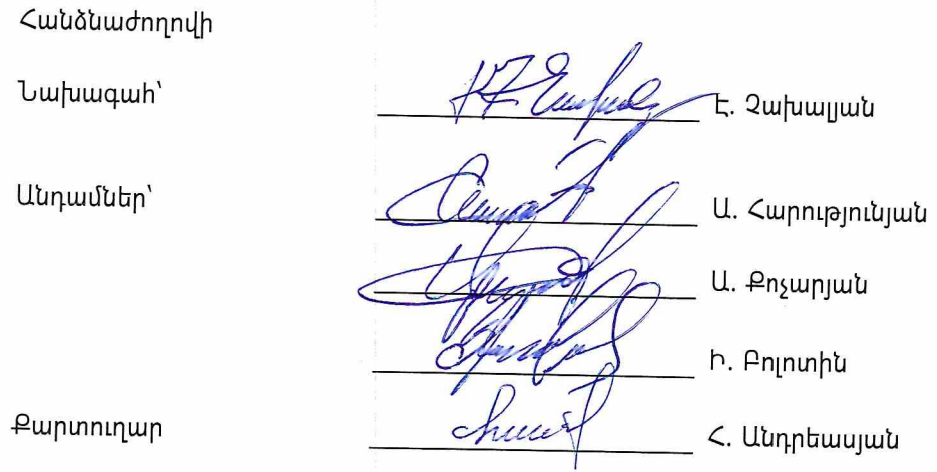 Հանձնաժողովի
Նախագահ՝ Է. Չախալյան
Անդամներ՝ Ա. Հարությունյան
Ա. Քոչարյան
Ի. Բոլոտին
Քարտուղար Հ. Անդրեասյան